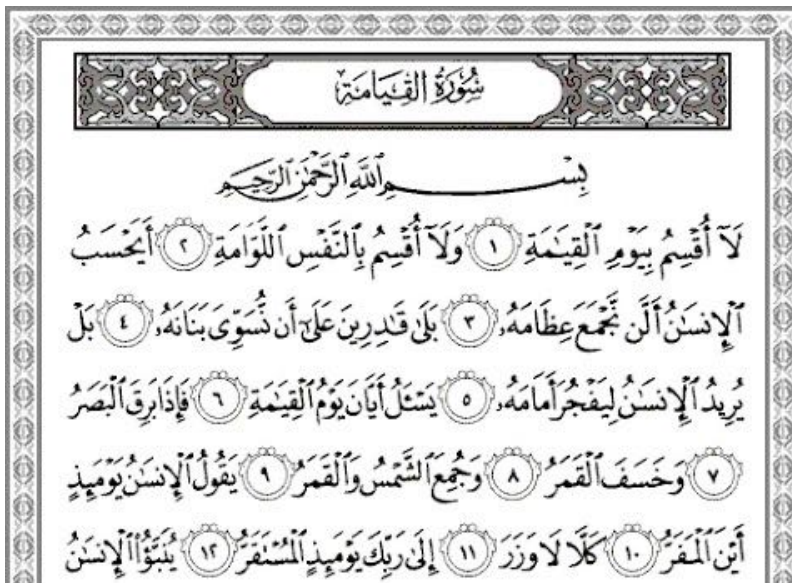 سُورَةُ القِيَامَة
بِسْمِ ٱللَّهِ ٱلرَّحْمَٰنِ ٱلرَّحِيمِ
لَآ أُقْسِمُ بِيَوْمِ ٱلْقِيَٰمَةِ ١ وَلَآ أُقْسِمُ بِٱلنَّفْسِ ٱللَّوَّامَةِ ٢ أَيَحْسَبُ
ٱلْإِنسَٰنُ أَلَّن نَّجْمَعَ عِظَامَهُۥ ٣ بَلَىٰ قَٰدِرِينَ عَلَىٰٓ أَن نُّسَوِّىَ بَنَانَهُۥ ٤ بَلْ
يُرِيدُ ٱلْإِنسَٰنُ لِيَفْجُرَ أَمَامَهُۥ ٥ يَسْـَٔلُ أَيَّانَ يَوْمُ ٱلْقِيَٰمَةِ ٦ فَإِذَا بَرِقَ ٱلْبَصَرُ
٧ وَخَسَفَ ٱلْقَمَرُ ٨ وَجُمِعَ ٱلشَّمْسُ وَٱلْقَمَرُ ٩ يَقُولُ ٱلْإِنسَٰنُ يَوْمَئِذٍ
أَيْنَ ٱلْمَفَرُّ ١٠ كَلَّا لَا وَزَرَ ١١ إِلَىٰ رَبِّكَ يَوْمَئِذٍ ٱلْمُسْتَقَرُّ ١٢ يُنَبَّؤُا۟ ٱلْإِنسَٰنُ